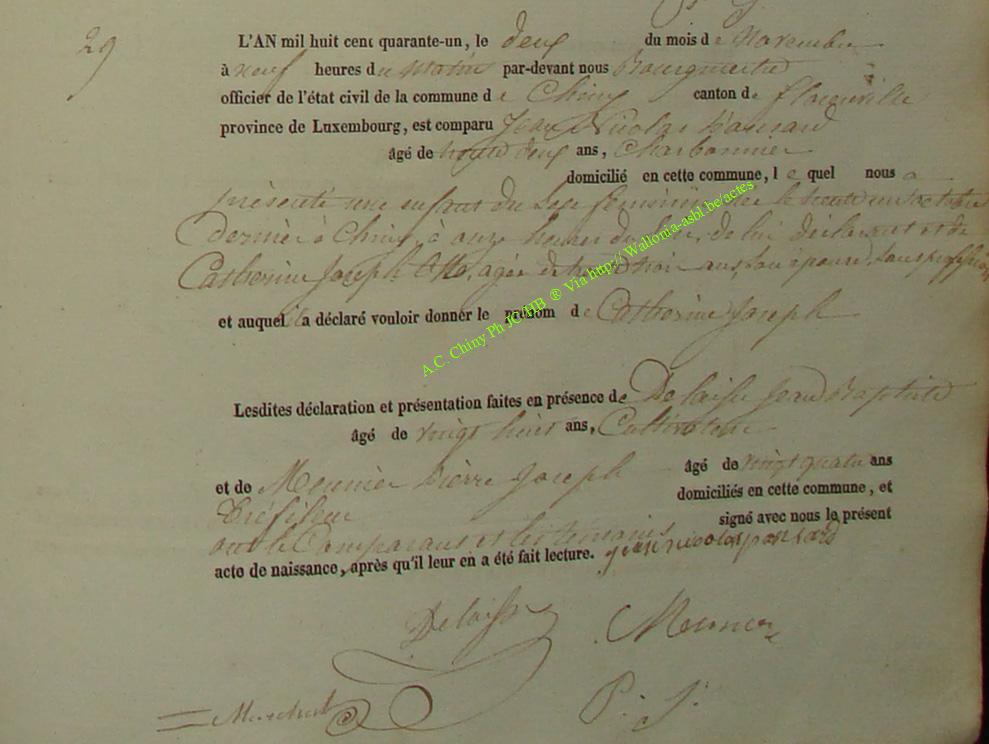 29
L'AN mil huit cent quarante-un, le deux du mois de Novembre
à neuf heures du matin par-devant nous Bourgmestre
officier de l'état civil de la commune de Chiny canton de florenville
province de Luxembourg, est comparu Jean Nicolas Pansard
âgé de trente deux ans, Charbonnier
domicilié en cette commune, le quel nous a
présenté une enfant du sexe féminin née le trente un octobre
dernier à Chiny, à onze heures du soir, de lui déclarant et de
Catherine Joseph Otte, agée de trente trois ans, son épouse, sans profession
et auquel il a déclaré vouloir donner le prénom de Catherine Joseph
Lesdites déclaration et présentation faites en présence de Delaisse Jean Baptiste
âgé de vingt huit ans, Cultivateur
et de Meunier Pierre Joseph âgé de vingt quatre ans
Tréfileur domiciliés en cette commune, et
ont le Comparant et les témoins signé avec nous le présent
acte de naissance, après qu'il leur en a été fait lecture. jean nicolas pansard
Delaisse Meunier
P. J.
A.C. Chiny Ph JC-HB ® Via http://Wallonia-asbl.be/actes